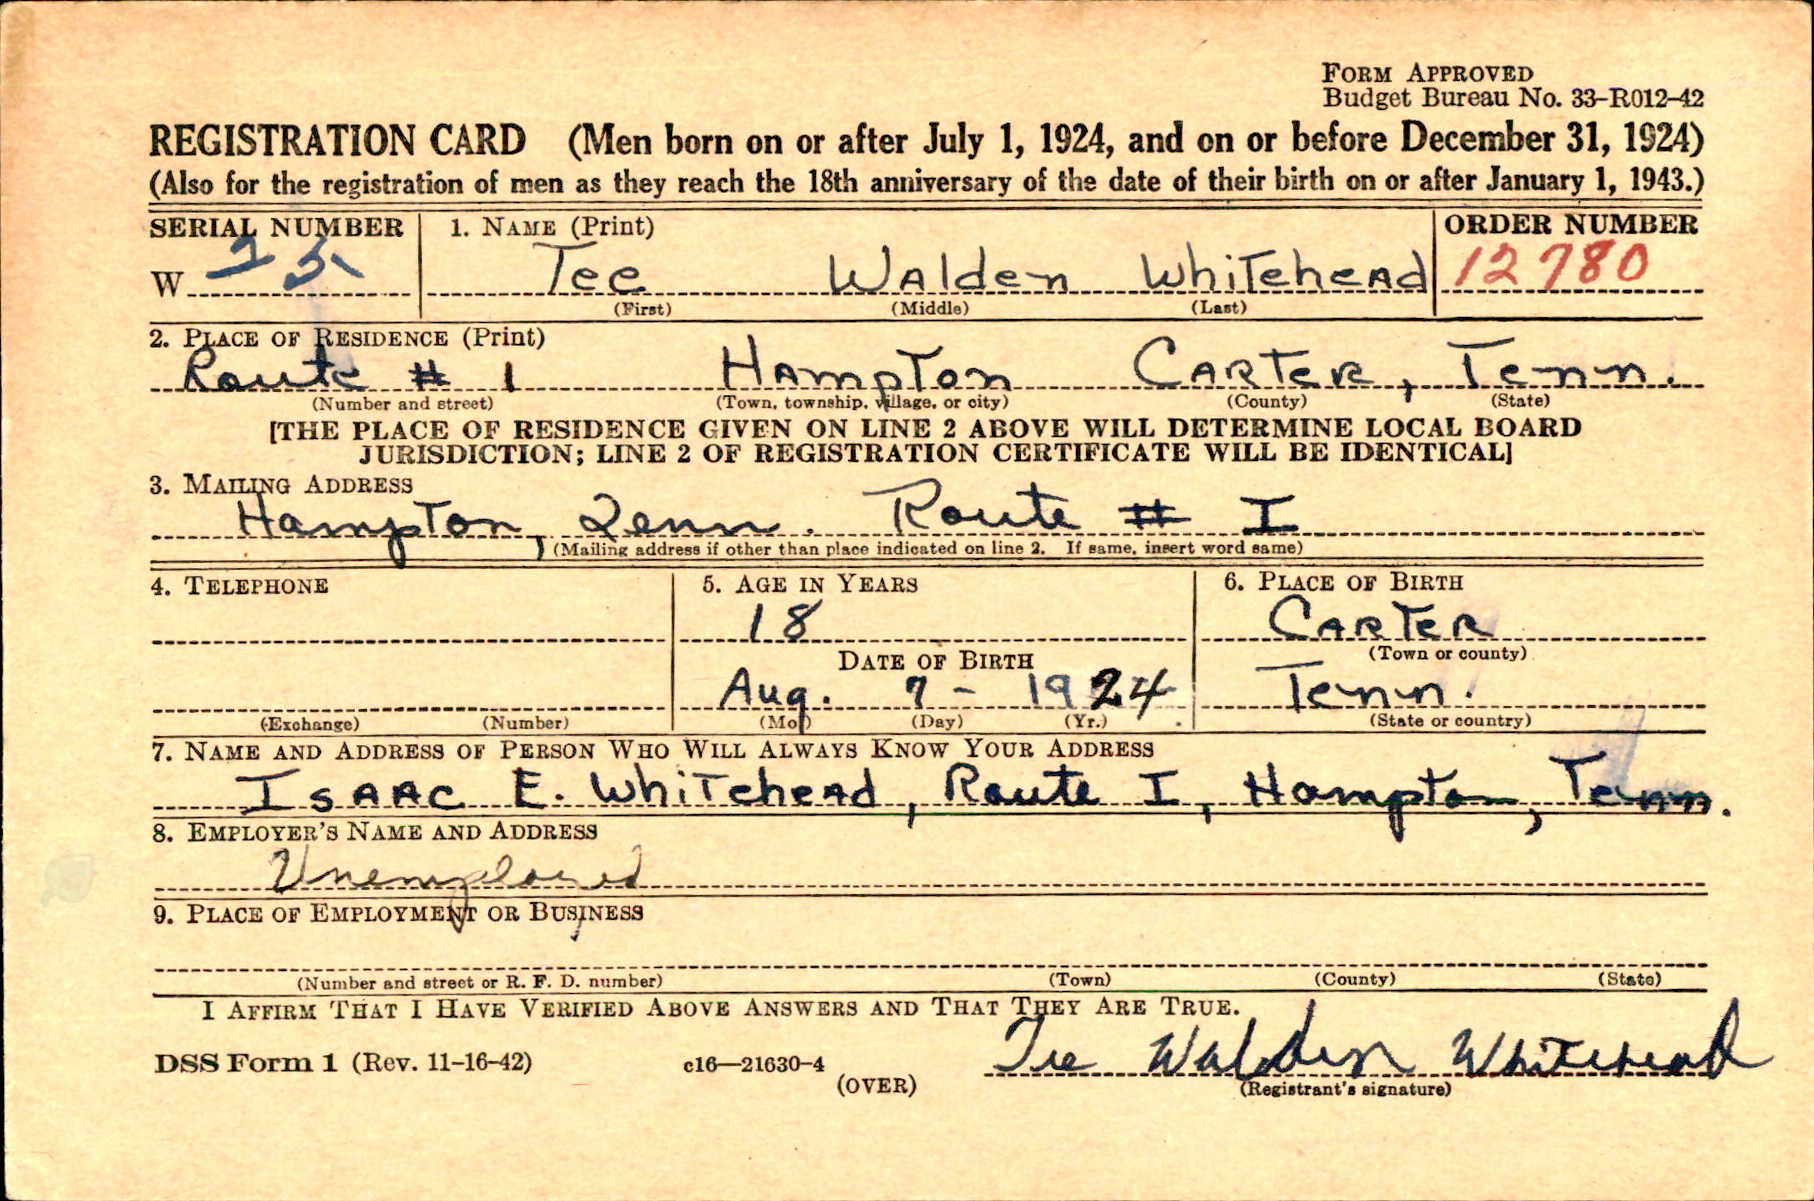 FORM APPROVED
Budget Bureau No. 33-R012-42
REGISTRATION CARD (Men born on or after July 1, 1924, and on or before December 31, 1924)
(Also for the registration of men as they reach the 18th anniversary of the date of their birth on or after January 1, 1943.)
SERIAL NUMBER 1. NAME (Print) ORDER NUMBER
W 25 Tee Walden Whitehead 12780
(First) (Middle) (Last)
2. PLACE OF RESIDENCE (Print)
Route # 1 Hampton Carter, Tenn.
(Number and street) (Town, township, village, or city) (County) (State)
[THE PLACE OF RESIDENCE GIVEN ON LINE 2 ABOVE WILL DETERMINE LOCAL BOARD
JURISDICTION; LINE 2 OF REGISTRATION CERTIFICATE WILL BE IDENTICAL]
3. MAILING ADDRESS
Hampton, Tenn. Route # I
(Mailing address if other than place indicated on line 2. If same, insert word same)
4. TELEPHONE 5. AGE IN YEARS 6. PLACE OF BIRTH
18 Carter
DATE OF BIRTH (Town or county)
Aug. 7 - 1924 Tenn.
(Exchange) (Number) (Mo.) (Day) (Yr.) (State or country)
7. NAME AND ADDRESS OF PERSON WHO WILL ALWAYS KNOW YOUR ADDRESS
Isaac E. Whitehead, Route I, Hampton, Tenn.
8. EMPLOYER'S NAME AND ADDRESS
Unemployed
9. PLACE OF EMPLOYMENT OR BUSINESS
(Number and street or R. F. D. number) (Town) (County) (State)
I AFFIRM THAT I HAVE VERIFIED ABOVE ANSWERS AND THAT THEY ARE TRUE.
DSS Form 1 (Rev. 11-16-42) c16—21630-4 Tee Walden Whitehead
(OVER) (Registrant's signature)